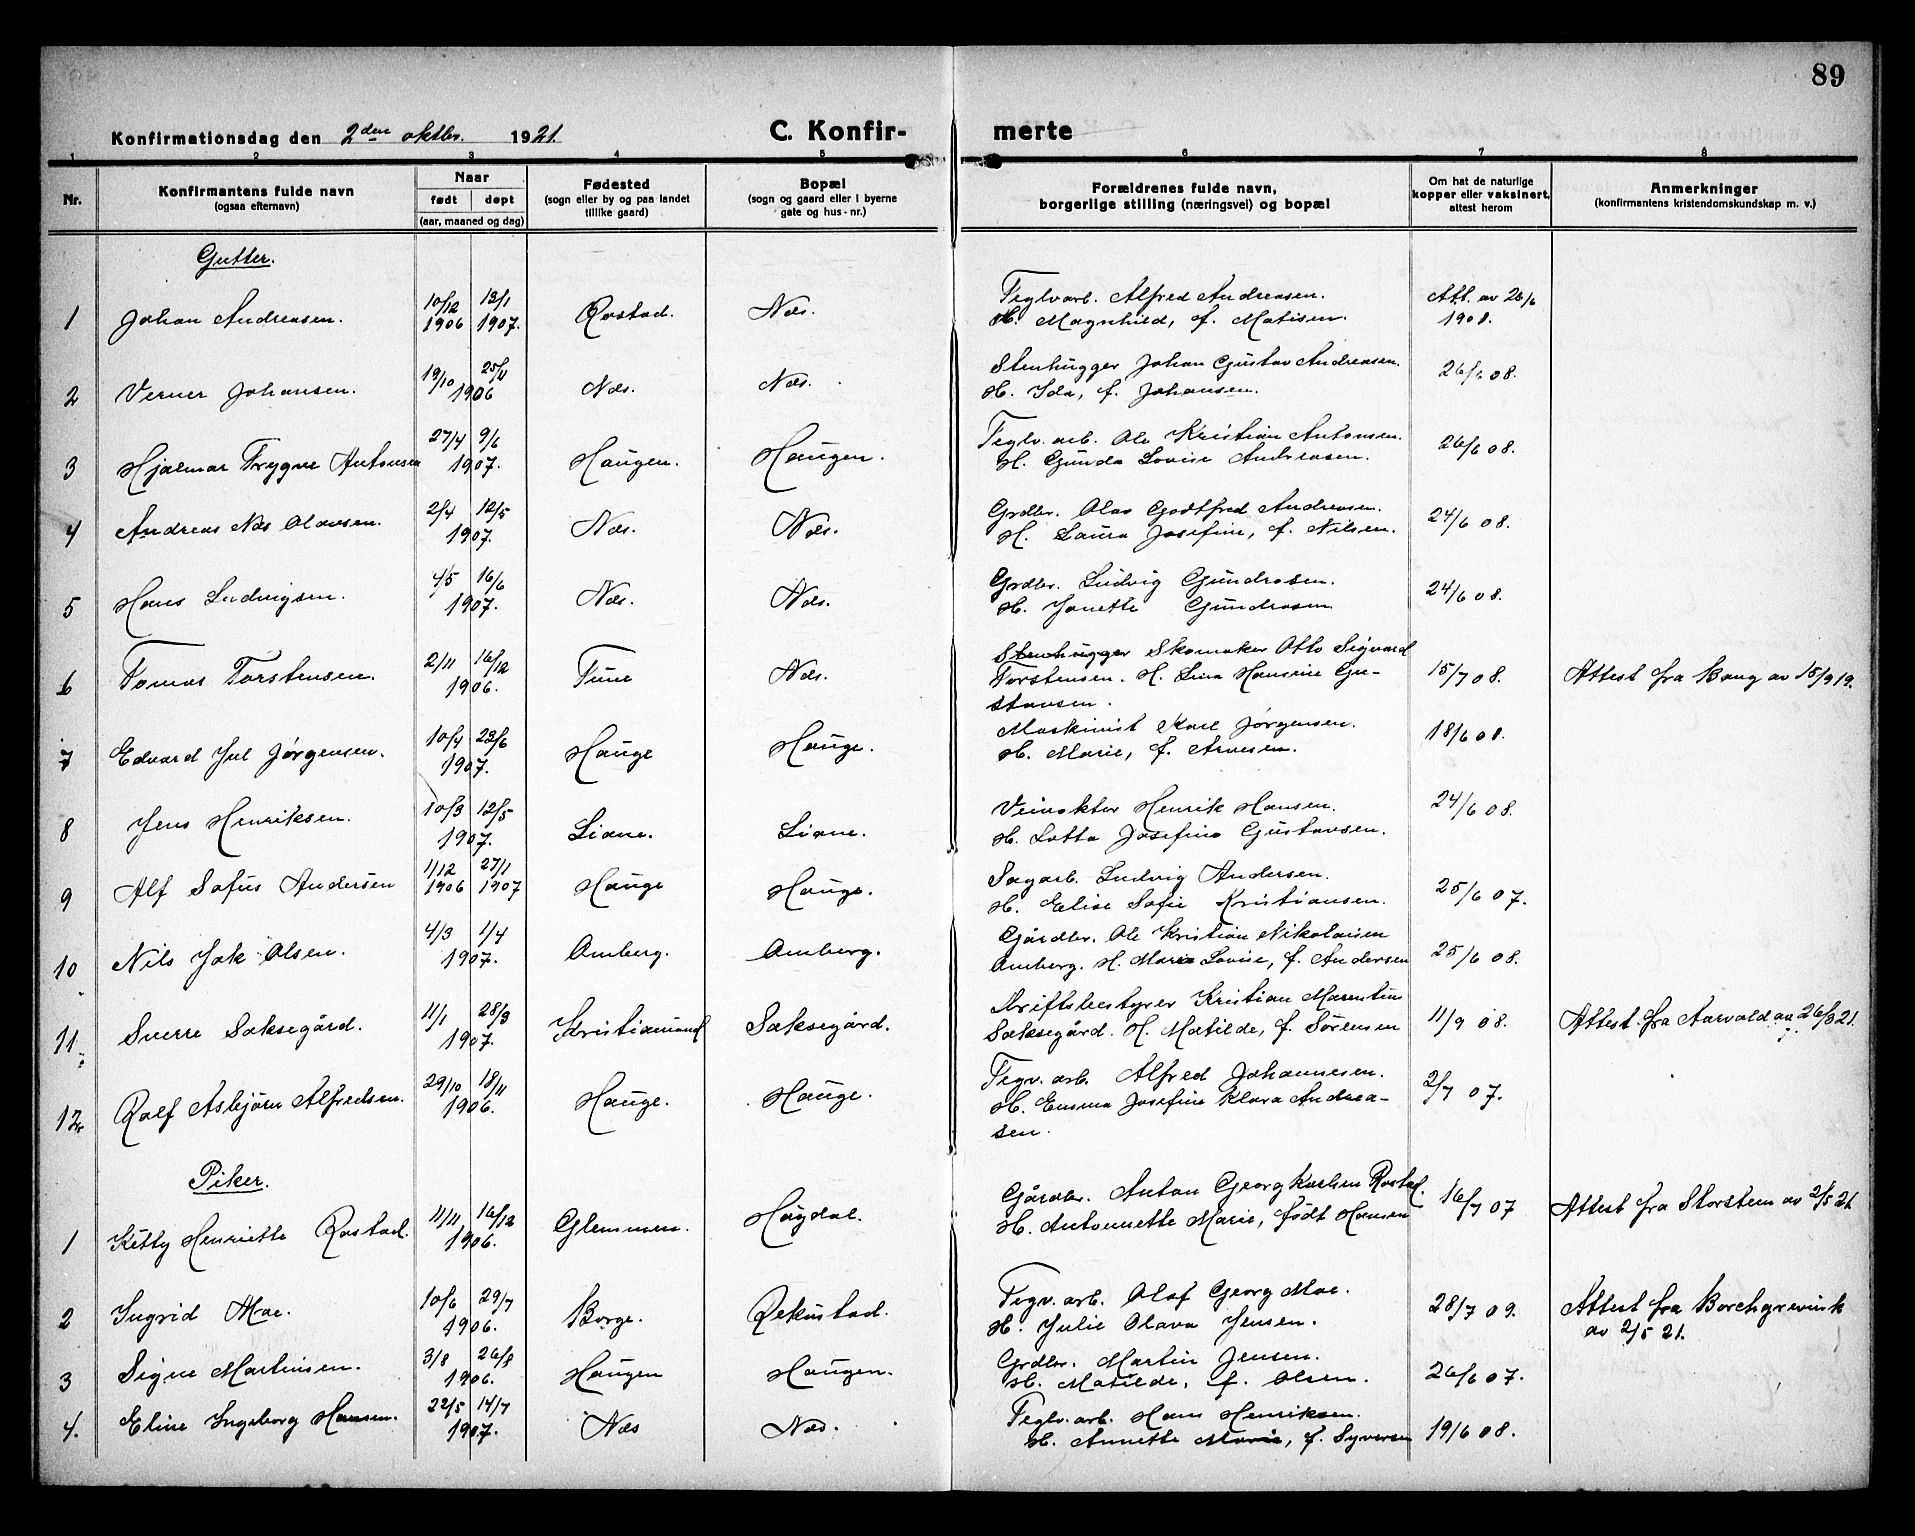 89
Konfirmationsdag den 2den oktbr. 1921.
C. Konfir- merte
1 2 3 4 5 6 7 8
Nr.
Konfirmantens fulde navn
(ogsaa efternavn)
Naar
født døpt
(aar, maaned og dag)
Fødested
(sogn eller by og paa landet
tillike gaard)
Bopæl
(sogn og gaard eller i byerne
gate og hus-nr.)
Forældrenes fulde navn,
borgerlige stilling (næringsvei) og bopæl
Om hat de naturlige
kopper eller vaksinert,
attest herom
Anmerkninger
(konfirmantens kristendomskundskap m. v.)
Gutter.
1 Johan Andreasen. 10/12 1906 13/1 1907. Rostad. Næs. Teglvarb. Alfred Andreasen. Att. av 26/6
H. Magnhild, f. Matisen. 1908.
2 Verner Johansen. 19/10 25/11 1906 Næs. Næs. Stenhugger Johan Gustav Andreasen. 26/6 08.
H. Ida, f. Johansen.
3 Hjalmar Trygve Antonsen 27/4 9/6 1907. Haugen. Haugen. Teglv. arb. Ole Kristian Antonsen. 26/6 08.
H. Gunda Lovise Andreasen.
4 Andreas Næs Olavsen. 2/4 12/5 1907. Næs. Næs. Grdbr. Olav Godtfred Andreasen. 24/6 08.
H. Laura Josefine, f. Nilsen.
5 Hans Ludvigsen. 4/5 16/6 1907. Næs. Næs. Grdbr. Ludvig Gundrosen. 24/6 08.
H. Janette Gundrosen
6 Tomas Torstensen. 2/11 16/12 1906. Tune Næs. Stenhugger Skomaker Otto Sigvard
Torstensen. H. Lina Hansine Gu- 15/7 08. Attest fra Bang av 15/9 19.
stavsen.
7 Edvard Jul Jørgensen. 10/4 23/6 1907. Hauge Hauge. Maskinist Karl Jørgensen. 18/6 08.
H. Marie, f. Arnesen.
8 Jens Henriksen. 10/3 12/5 1907. Liane. Liane. Veivokter Henrik Hansen. 24/6 08.
H. Lotta Josefine Gustavsen.
9 Alf Sofus Andersen 1/12 1906 27/1 1907 Hauge Hauge. Sagarb. Ludvig Andersen. 25/6 07.
H. Elise Sofie Kristiansen.
10 Nils Jak. Olsen. 4/3 1/4 1907. Omberg. Omberg. Gårdbr. Ole Kristian Nikolaisen
Omberg. H. Maria Lovise, f. Andersen 25/6 08.
11. Sverre Saksegård. 11/1 28/3 1907. Kristiansand Saksegård. Driftsbestyrer Kristian Marentius
Saksegård. H. Matilde, f. Sørensen 11/9 08. Attest fra Aarvold av 26/8 21.
12. Rolf Asbjørn Alfredsen. 29/10 18/11 1906. Hauge. Hauge. Tegv. arb. Alfred Johannesen. 2/7 07.
H. Emma Josefine Klara Andrea-
sen.
Piker.
1 Kitty Henriette Rostad. 11/11 16/12 1906. Glemmen. Høgdal. Gårdbr. Anton Georg Karlsen Rostad. 16/7 07 Attest fra Storsten av 2/5 21
H. Antonnette Marie, født Hansen
2 Ingrid Moe. 10/6 29/7 1906. Borge. Rekustad. Tegv. arb. Olaf Georg Moe. 28/7 09. Attest fra Borchgrevink
H. Julie Olava Jensen. av 2/5 21.
3 Signe Martinsen. 3/8 26/8 1906. Haugen Haugen. Grdbr. Martin Jensen. 26/6 07.
H. Matilde, f. Olsen.
4. Eline Ingeborg Hansen. 22/5 14/7 1907. Næs Næs. Teglv. arb. Hans Henriksen.
H. Annette Marie, f. Syversen 19/6 08.